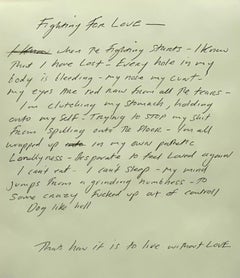 Fighting for Love —
when The fighting starts – I know
That I have Lost – Every hole in my
body is bleeding – my nose my cunt –
my eyes are red raw from all the tears –
I'm clutching my stomach, holding
onto my self – Trying to stop my shit
from spilling onto The floor – I'm all
wrapped up in my own pathetic
Lonelyness – Desperate to feel Loved again
I can't eat – I can't sleep – my mind
jumps from a grinding numbness – To
some crazy fucked up out of controll
Dog like hell
Thats how it is to live without LOVE